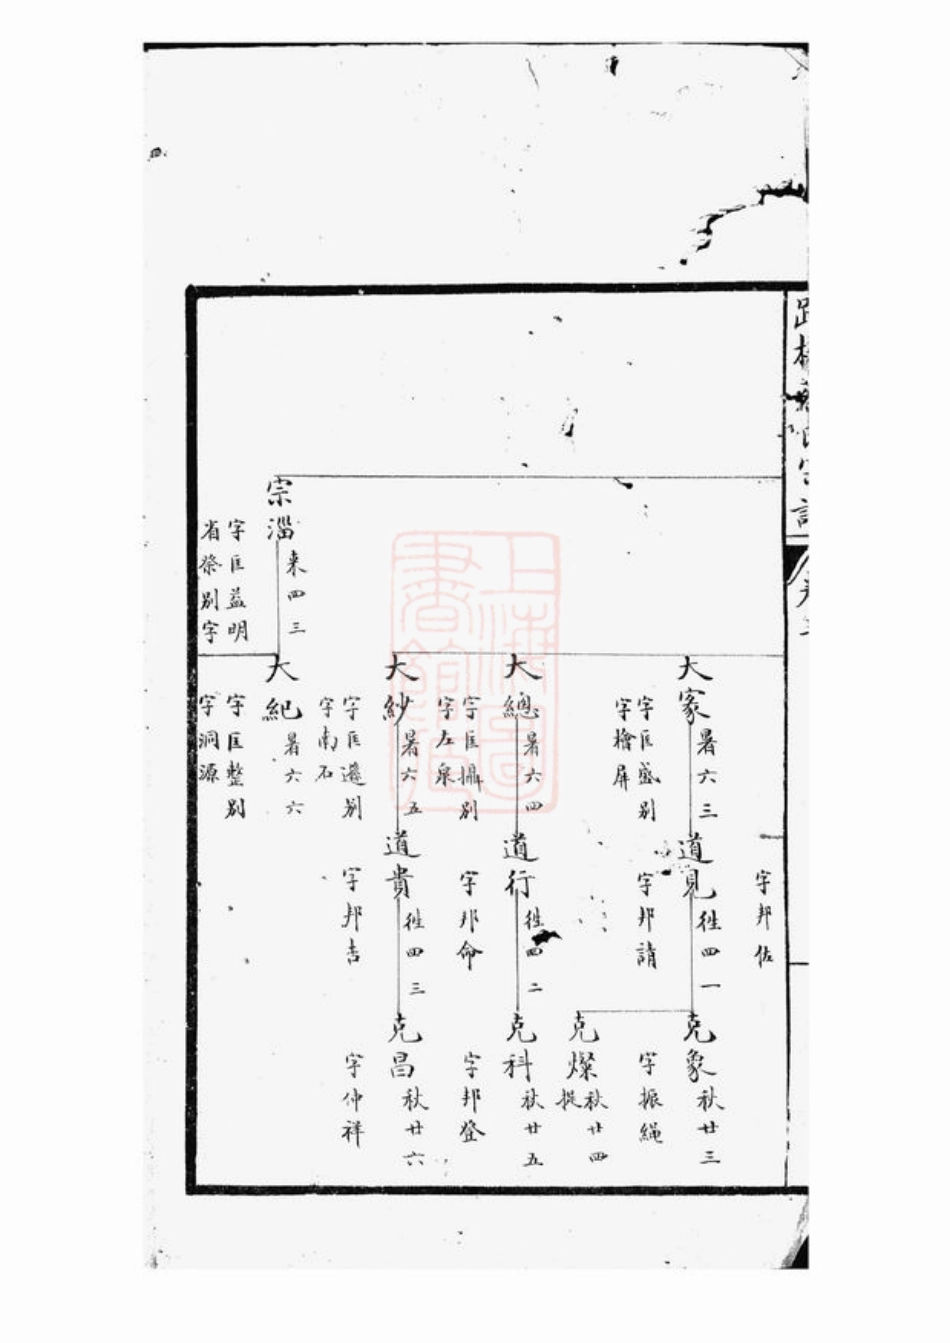 字邦佑
大家
暑六三
字匡盛别
字檜屏
道見
徃四一
字邦請
克象
秋廿三
字振繩
克燦
秋廿四
大總
暑六四
字匡攝别
字左泉
道行
徃四二
字邦命
克科
秋廿五
字邦登
大紗
暑六五
字匡遜别
字南石
道貴
徃四三
字邦吉
克昌
秋廿六
字仲祥
宗淄
来四三
字匡益明
省祭别字
大紀
暑六六
字匡整别
字洞源
上海圖書館藏